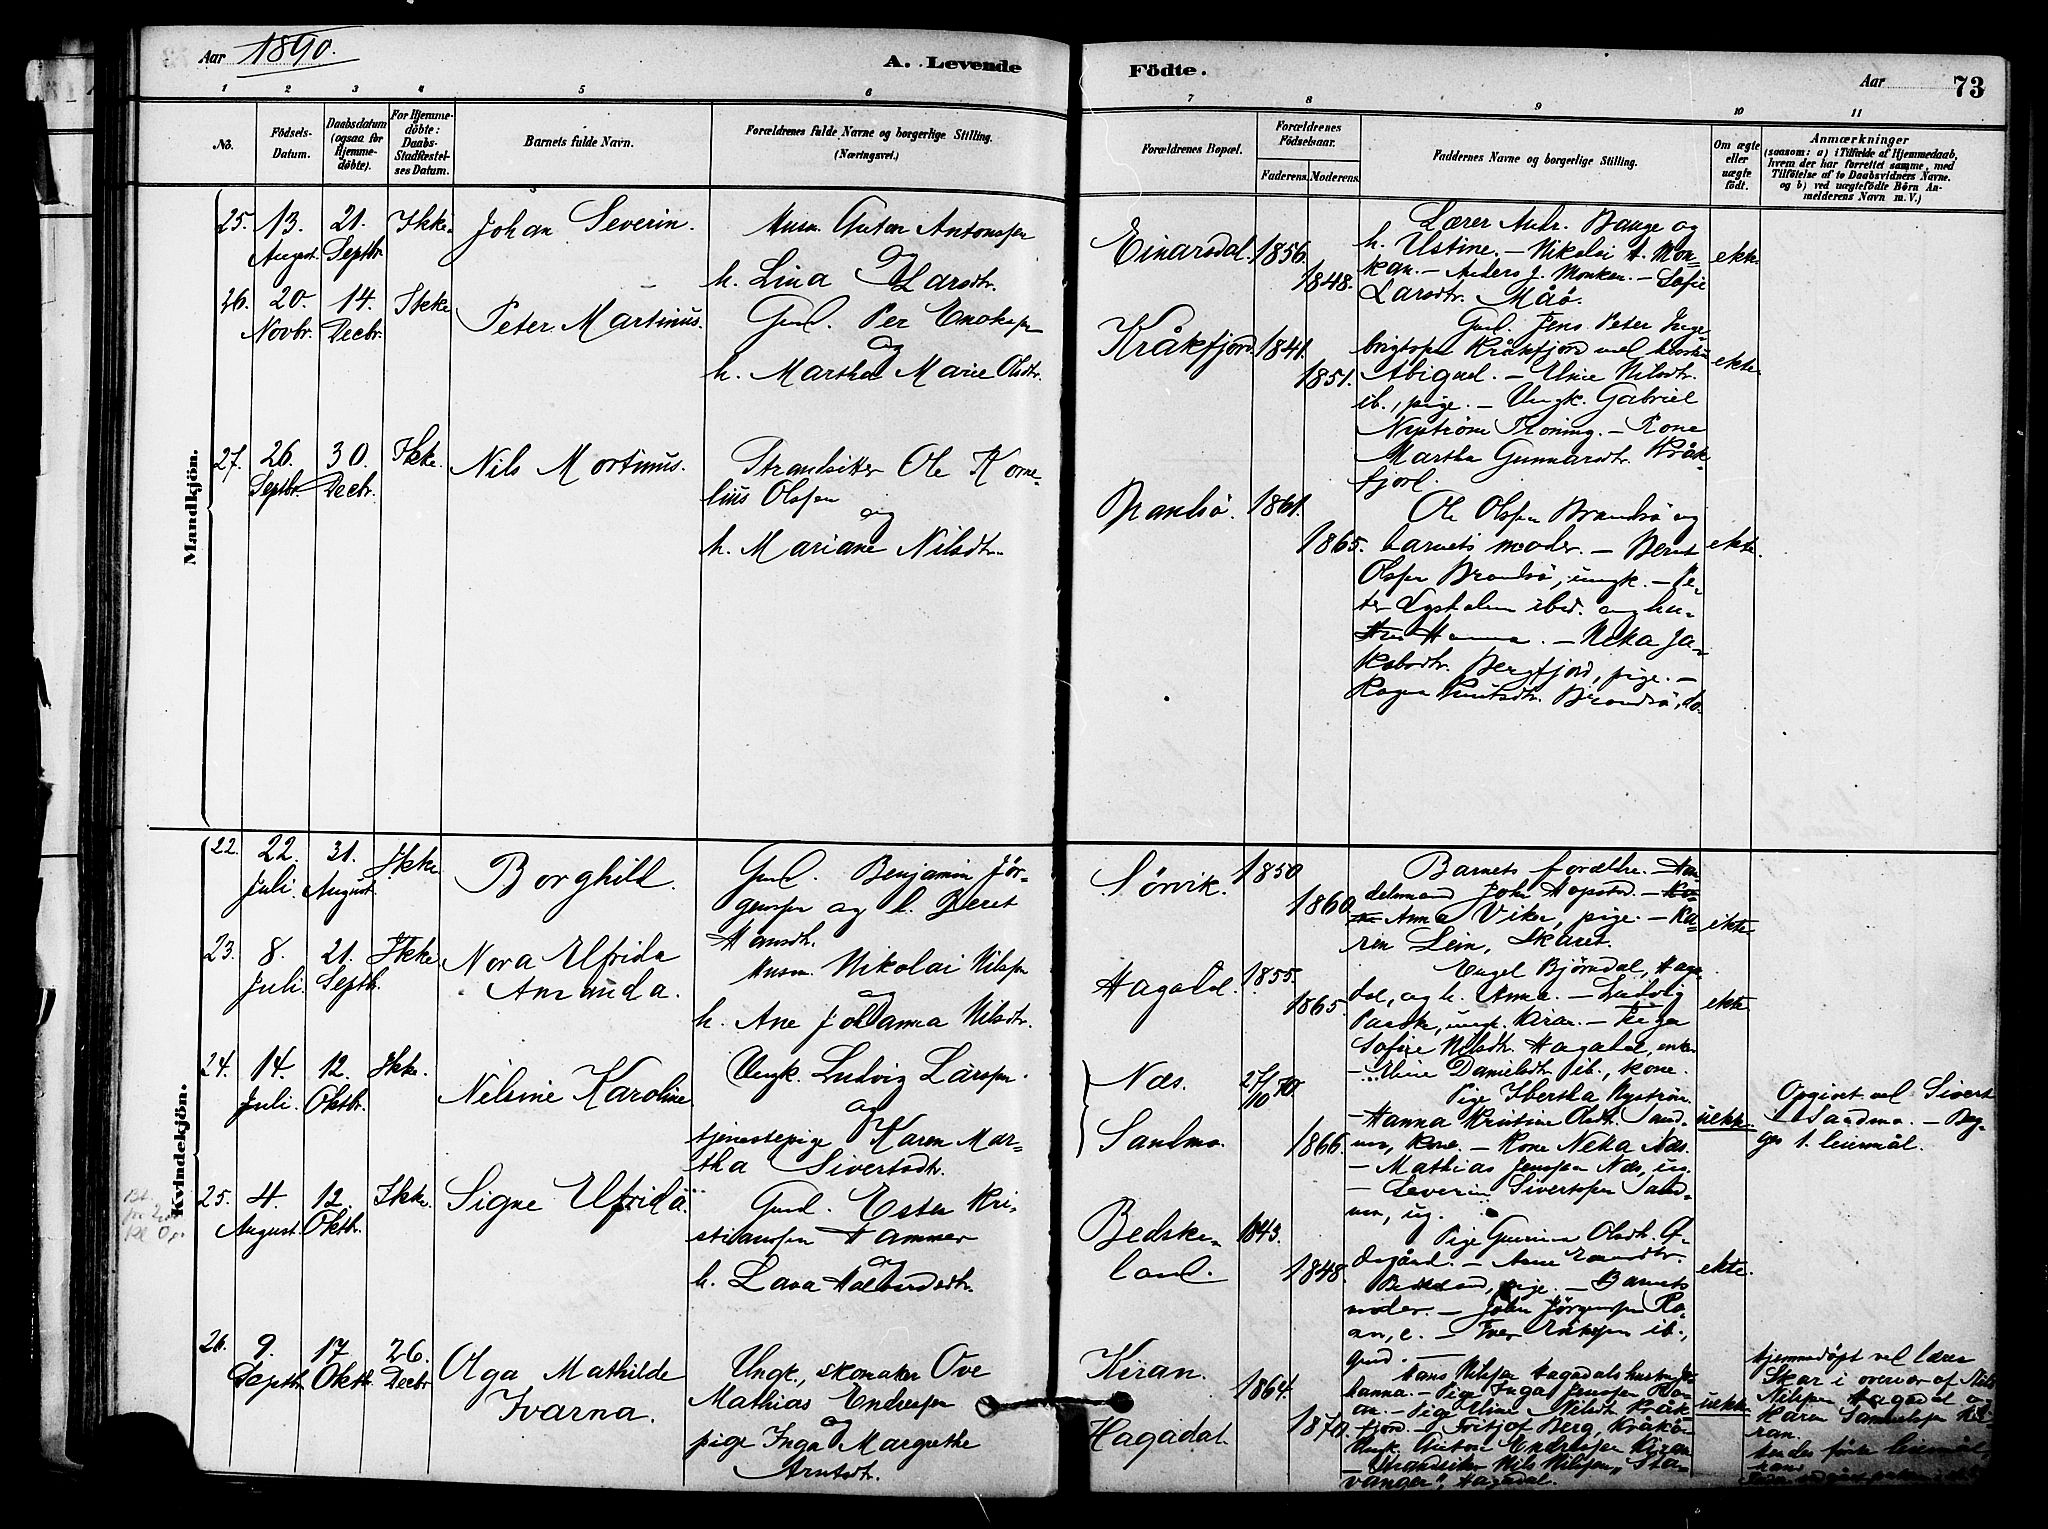 Aar 1890.
A. Levende Födte.
Aar 73
1 2 3 4 5 6 7 8 9 10 11
No.
Födsels-Datum.
Daabsdatum (ogsaa for Hjemmedöbte).
For Hjemmedöbte: Daabs-Stadfæstelses Datum.
Barnets fulde Navn.
Forældrenes fulde Navne og borgerlige Stilling. (Næringsvei.)
Forældrenes Bopæl.
Forældrenes Födselsaar.
Faderens. Moderens.
Faddernes Navne og borgerlige Stilling.
Om ægte eller uægte født.
Anmærkninger
(saasom: a) i Tilfælde af Hjemmedaab, hvem der har forrettet samme, med Tilföielse af to Daabsvidners Navne. og b) ved uægtefödte Börn Anmelderens Navn m. V.)
Mandkjön.
25. 13. August. 21. Septbr. Ikke. Johan Severin.
Husm. Anton Antonsen
og
h. Lina Larsdtr.
Einarsdal. 1856. 1848.
Lærer Andr. Bauge og
h. Ustine. – Nikolai A. Mon-
kan. – Anders J. Monkan. – Sofie
Larsdtr. Måø.
ekte
26. 20. Novbr. 14. Decbr. Ikke Peter Martinus.
Gmd. Per Enoksen
og
h. Martha Marie Olsdtr.
Kråkfjord. 1841. 1851.
Gmd. Jens Peter Inge-
brigtsen Kråkfjord med hustru
Abigael. – Unie Nilsdtr.
ib., pige. – Ungk. Gabriel
Nystrøm Troning. – Kone
Martha Gunnarsdtr. Kråk-
fjord.
ekte
27. 26. Septbr. 30. Decbr. Ikke. Nils Mortinus.
Strandsitter Ole Korne-
lius Olssen
og
h. Mariane Nilsdtr.
Brandsø. 1861. 1865.
Ole Olssen Brandsø og
barnets moder. – Bernt
Olssen Brandsø, ungk. – Pe-
ter ibid. og hu-
Hanna. – Neka Ja-
kobsdtr. Bergfjord, pige. –
Ragna Knutsdtr. Brandsø, do
ekte.
Kvindekjön.
22. 22. Juli. 31. August. Ikke Borghild.
Gmd. Benjamin Jör-
gensen og h. Beret
Hansdtr.
Sørvik. 1850 1860.
Barnets forældre. Han-
delsmand John Hopstad. –
Anna Vike, pige. – Ka-
rin Lein, Skaret.
ekte
23. 8. Juli. 21. Septb. Ikke Nora Elfrida
Amanda.
Husm. Nikolai Nilsen
og
h. Ane Johanna Nilsdtr.
Hagadal. 1855. 1865.
Engel Bjørndal, Haga-
dal, og h. Anna. – Ludvig
Paask, ungk. Kiran. – Inger
Sofie Nilsdtr. Hagadal, enke
– Unie Danielsdtr. ib., kone.
ekte
24. 14. Juli. 12. Oktbr. Ikke. Nilsine Karoline
Ungk. Ludvig Larssen.
og
tjenestepige Karen Mar-
tha Sivertsdtr.
Næs. Sandmo. 27/10 70. 1866.
Pige Ibertha Nystrøm.
– Hanna Kristine Olsdt. Sand-
mo, kone. – Kone Neka Næs.
– Mathias Jenssen Næs, ug.
– Severin Sivertsen Sand-
mo, ug.
uekte.
Opgivet ved Sivert
Sandmo. – Beg-
ges 1. leiermål.
25. 4. August. 12. Oktb. Ikke. Signe Elfrida.
Gmd. Ester Kri-
stianssen Hammer
og
h. Lava Halvardsdtr.
Bedske-
land. 1843. 1848.
Pige Gurina Olsdt. Ø-
degård. – Ane
pige. – Barnets
moder. – John Jörgensen Ra-
an, e. – Iver Eriksen ib.,
gmd. –
ekte.
26. 9. Septbr. 17. Oktb. 26. Decbr Olga Mathilde
Ivarna.
Ungk., skomaker Ove
Mathias Endresen
og
pige Inga Margrethe
Arntsdtr.
Kiran. Hagadal. 1864. 1870.
Hans Nilssen Hagadals hustru Jo-
hanna. – Pige Inga Jenssen Ra-
an. – Pige Unie Nilsdt. Kråk-
fjord. – Fritjof Berg, Kråkö.
Ungk. Anton Endresen Kiran
– Strandsitter Nils Nilssen, "Sta-
vanger", Hagadal.
uekte
Hjemmedøpt ved lærer
Skar i overvær af Nils
Nilssen Hagadal og
Karen Samuelsen Ki-
ran.
Begges første leiermål,